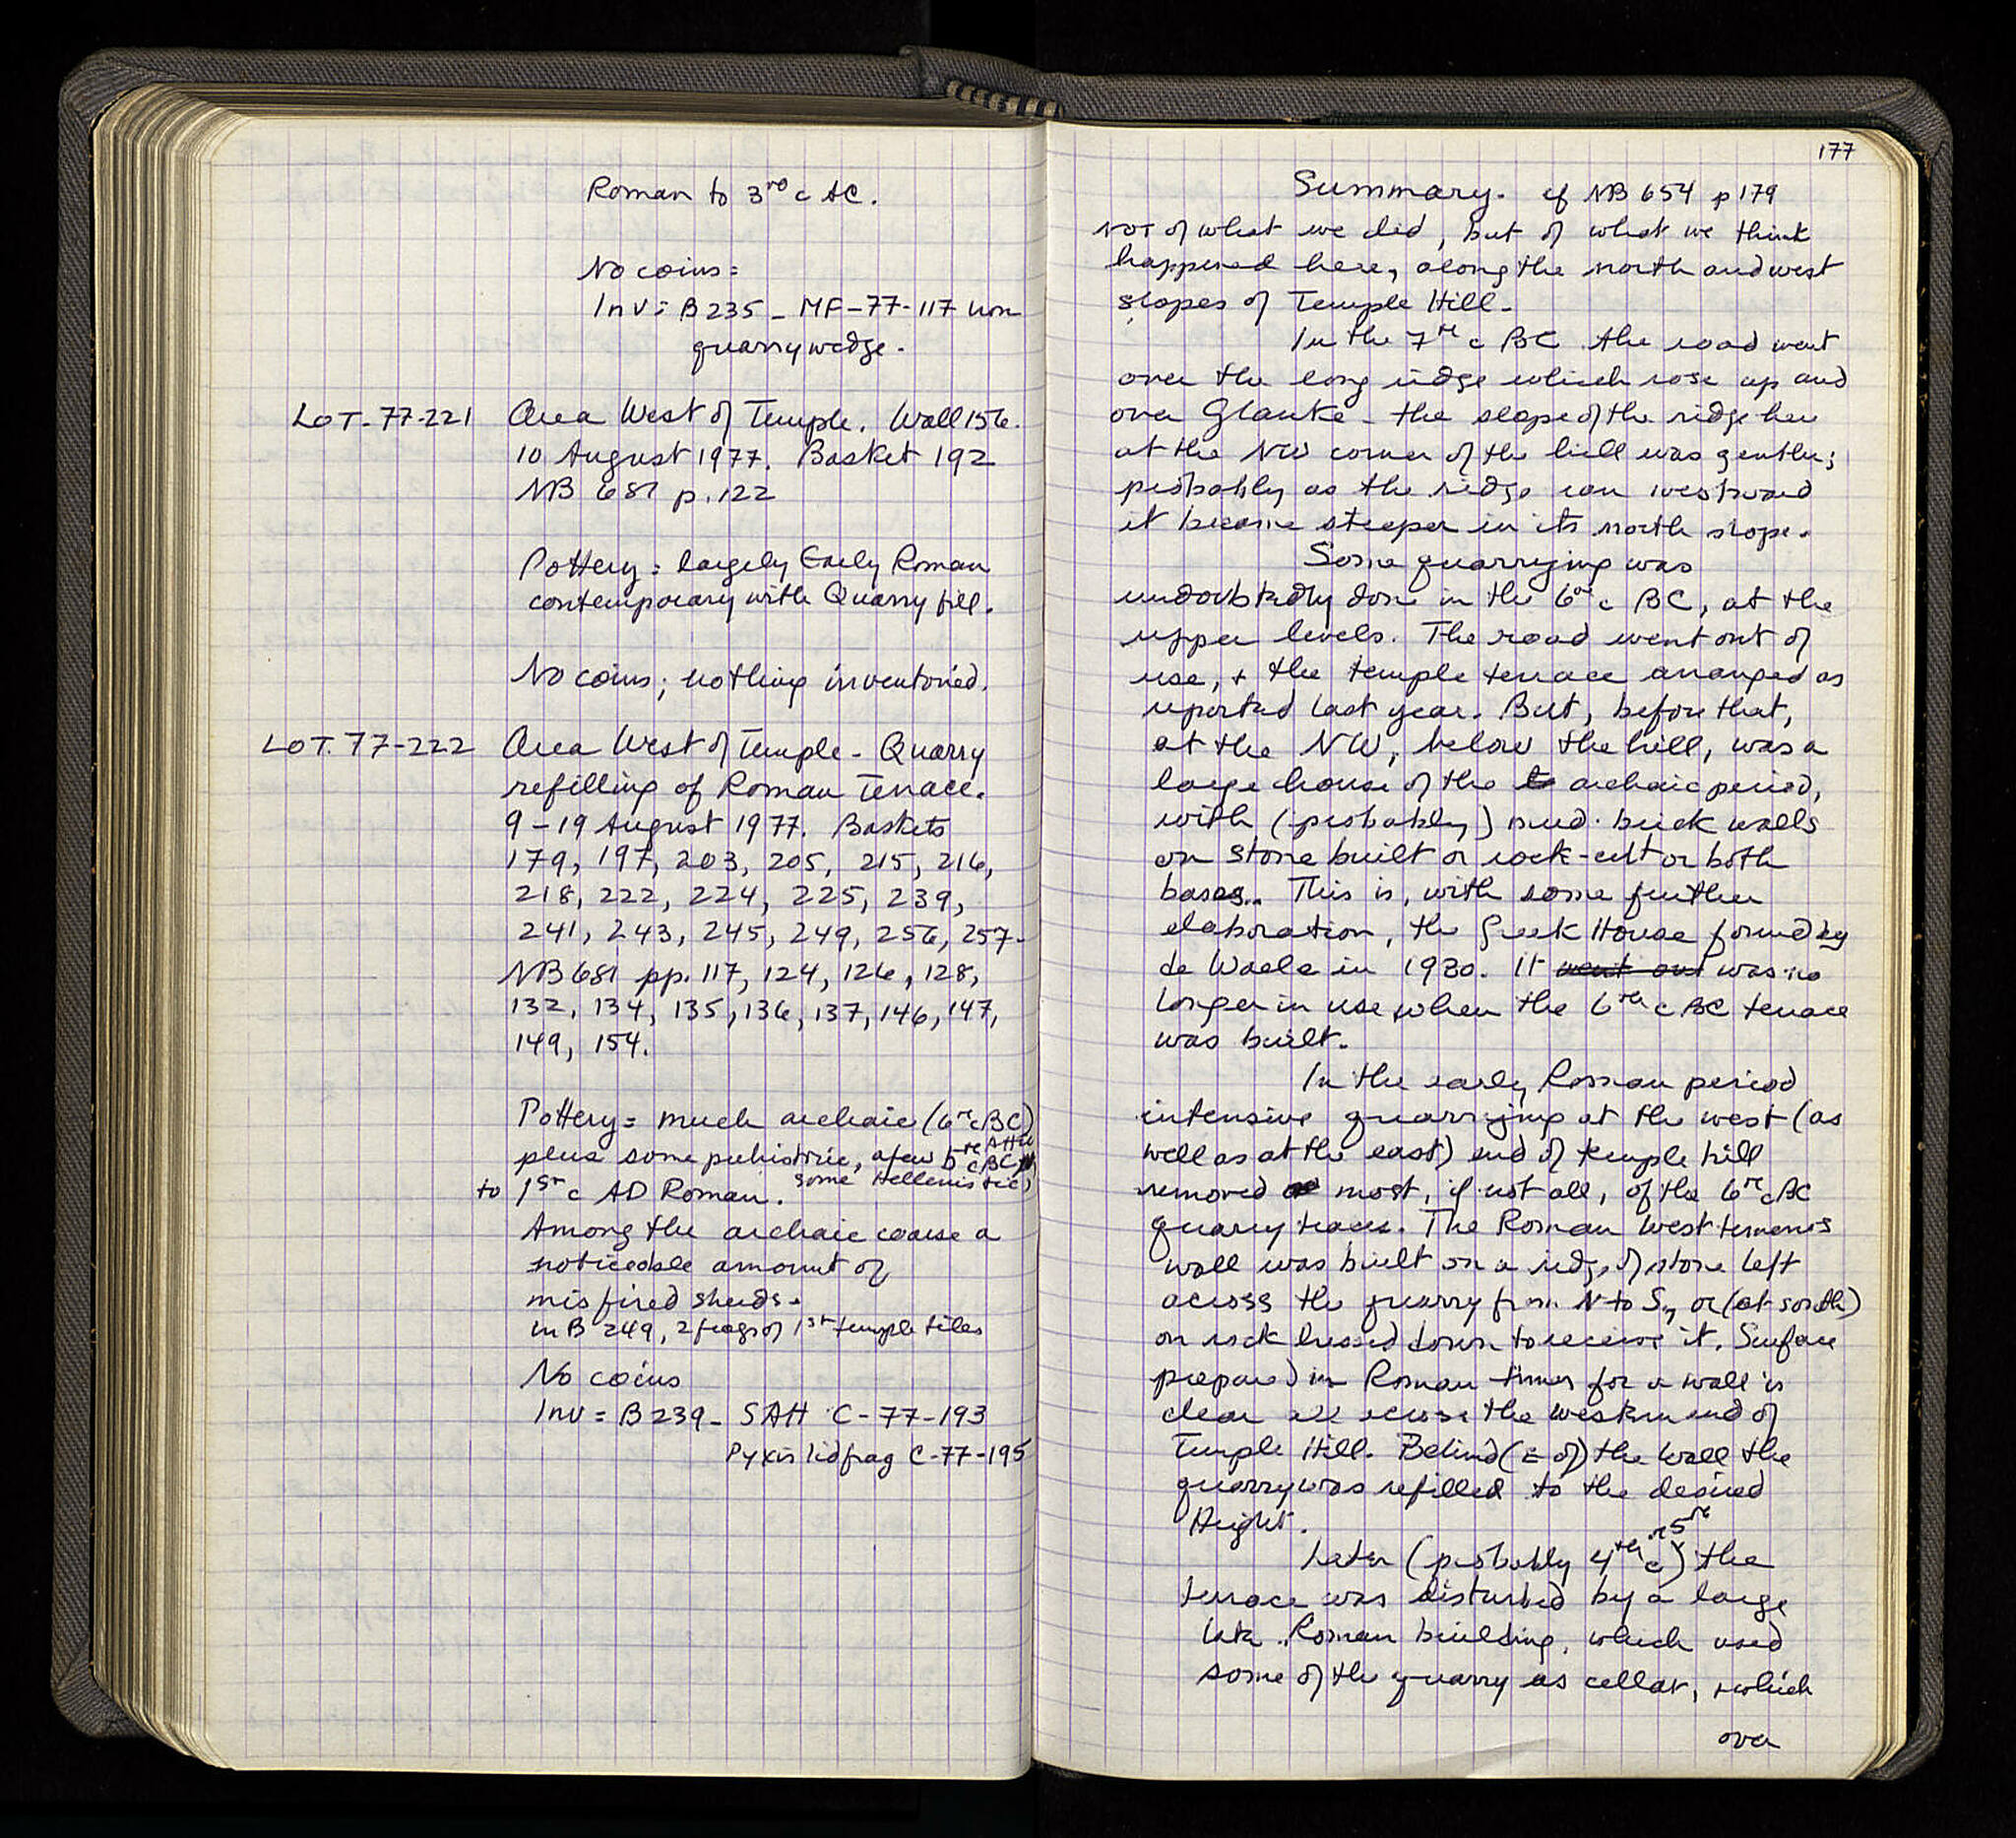 Roman to 3rd c AC.
No coins:
Inv: B 235 - MF-77-117 iron
quarry wedge.
LOT. 77-221 Area West of Temple. Wall 156.
10 August 1977. Basket 192
NB 681 p. 122
Pottery: largely Early Roman
contemporary with Quarry fill.
No coins; nothing inventoried.
LOT. 77-222 Area West of Temple - Quarry
refilling of Roman Terrace.
9-19 August 1977. Baskets
179, 197, 203, 205, 215, 216,
218, 222, 224, 225, 239,
241, 243, 245, 249, 256, 257.
NB 681 pp. 117, 124, 126, 128,
132, 134, 135, 136, 137, 146, 147,
149, 154.
Pottery: much archaic (6th c BC)
plus some prehistoric, a few 5th c BC Attic
some Hellenistic,
to 1st c AD Roman.
Among the archaic coarse a
noticeable amount of
misfired sherds.
in B 249, 2 frags of 1st temple tiles
No coins
Inv: B 239 - SAH C-77-193
Pyxis lid frag C-77-195
177
Summary. cf NB 654 p 179
NOT of what we did, but of what we think
happened here, along the north and west
slopes of Temple Hill.
In the 7th c BC the road went
over the long ridge which rose up and
over Glauke - the slope of the ridge here
at the NW corner of the hill was gentler;
probably as the ridge ran westward
it became steeper in its north slope.
Some quarrying was
undoubtedly done in the 6th c BC, at the
upper levels. The road went out of
use, + the temple terrace arranged as
reported last year. But, before that,
at the NW, below the hill, was a
large house of the archaic period,
with (probably) mud-brick walls
on stone built or rock-cut or both
bases. This is, with some further
elaboration, the Greek House found by
de Waele in 1930. It went out was no
longer in use when the 6th c BC terrace
was built.
In the early Roman period
intensive quarrying at the west (as
well as at the east) end of temple hill
removed most, if not all, of the 6th c BC
quarry traces. The Roman West temenos
wall was built on a ridge of stone left
across the quarry from N to S, or (at south)
on rock hewed down to receive it. Surface
prepared in Roman times for a wall is
clear all across the western end of
Temple Hill. Behind (E of) the wall the
quarry was refilled to the desired
Height.
Later (probably 4th or 5th c) the
terrace was disturbed by a large
late Roman building, which used
some of the quarry as cellar, + which
over